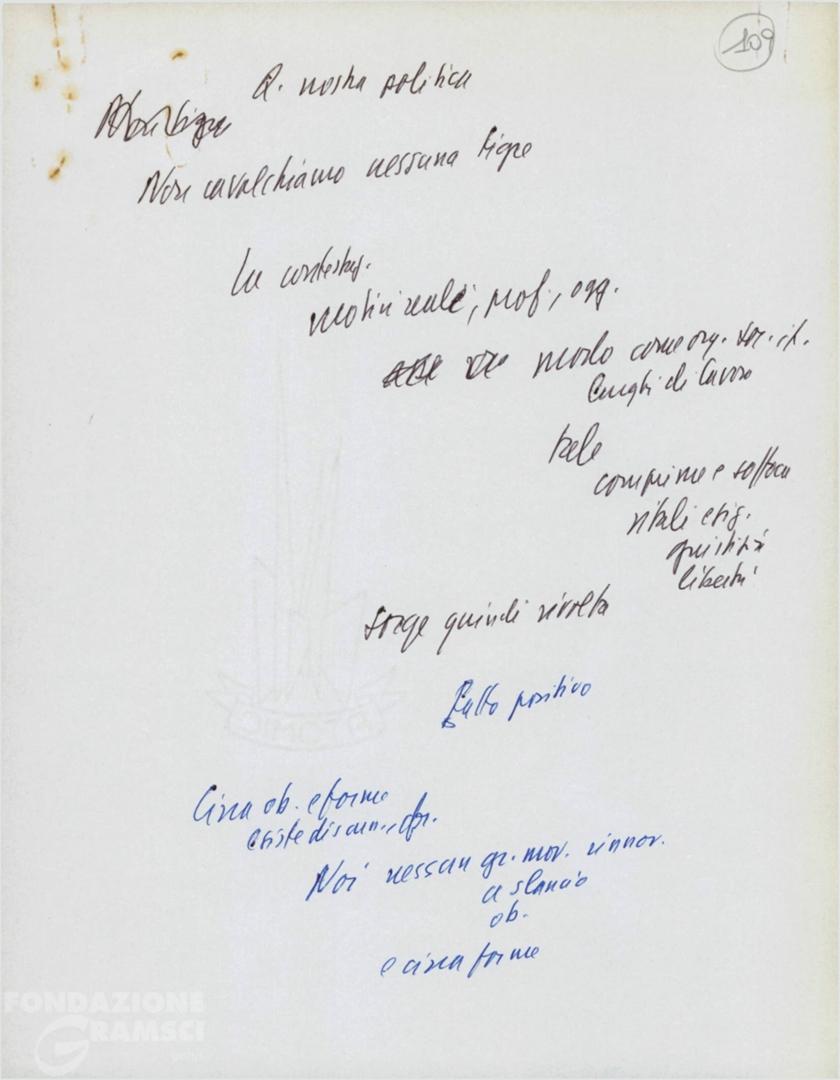 109
Q. nostra politica
Non cavalchiamo nessuna tigre
La contestaz.
motivi reali, prof., ogg.
modo come org. soc. it.
luoghi di lavoro
tale
comprime e soffoca
vitali esig.
giustizia
libertà
sorge quindi rivolta
Fatto positivo
Circa ob. e forme
esiste discuss.,
Noi nessun gr. mov. rinnov.
a slancio
ob.
e circa forme
DIMCTA
FONDAZIONE
GRAMSCI